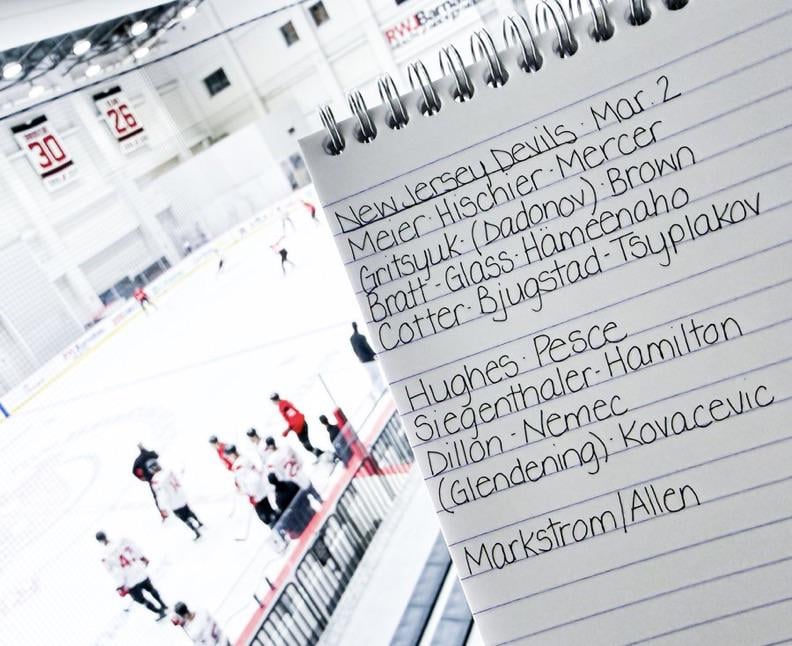 RWJBarnabas
30
26
New Jersey Devils · Mar. 2
Meier · Hischier · Mercer
Gritsyuk · (Dadonov) · Brown
Bratt - Glass · Hämeenaho
Cotter · Bjugstad - Tsyplakov
Hughes · Pesce
Siegenthaler - Hamilton
Dillon - Nemec
(Glendening) · Kovacevic
Markstrom/Allen